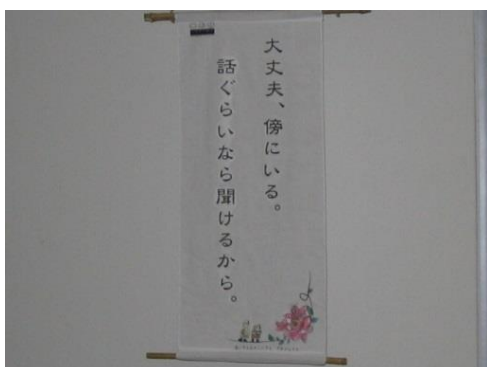 大丈夫、傍にいる。
話ぐらいなら聞けるから。